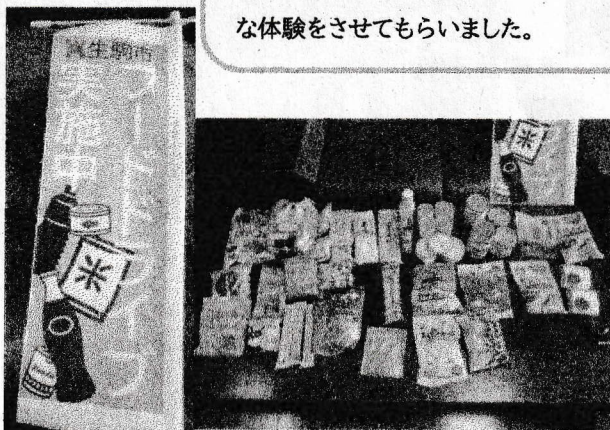 な体験をさせてもらいました。
生駒市
フードドライブ
実施中
米
米